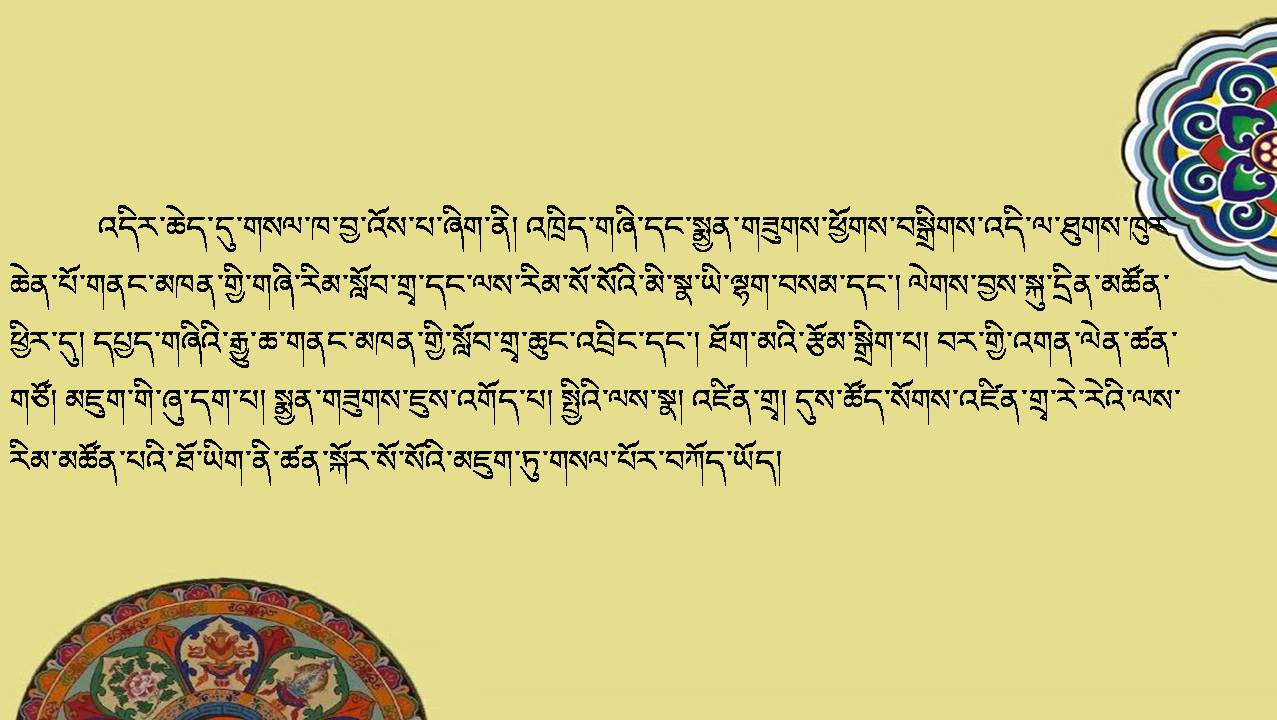 འདིར་ཆེད་དུ་གསལ་ཁ་བྱ་འོས་པ་ཞིག་ནི། འཁྲིད་གཞི་དང་སྨྱན་གཟུགས་ཕྱོགས་བསྒྲིགས་འདི་ལ་ཐུགས་ཁུར་
ཆེན་པོ་གནང་མཁན་གྱི་གཞི་རིམ་སློབ་གྲྭ་དང་ལས་རིམ་སོ་སོའི་མི་སྣ་ཡི་ལྷག་བསམ་དང་། ལེགས་བྱས་སྐུ་དྲིན་མཚོན་
ཕྱིར་དུ། དཔྱད་གཞིའི་རྒྱུ་ཆ་གནང་མཁན་གྱི་སློབ་གྲྭ་ཆུང་འབྲིང་དང་། ཐོག་མའི་རྩོམ་སྒྲིག་པ། བར་གྱི་འགན་ལེན་ཚན་
གཙོ། མཇུག་གི་ཞུ་དག་པ། སྨྱན་གཟུགས་ཇུས་འགོད་པ། སྤྱིའི་ལས་སྣ། འཛིན་གྲྭ། དུས་ཚོད་སོགས་འཛིན་གྲྭ་རེ་རེའི་ལས་
རིམ་མཚོན་པའི་ཐོ་ཡིག་ནི་ཚན་སྐོར་སོ་སོའི་མཇུག་ཏུ་གསལ་པོར་བཀོད་ཡོད།